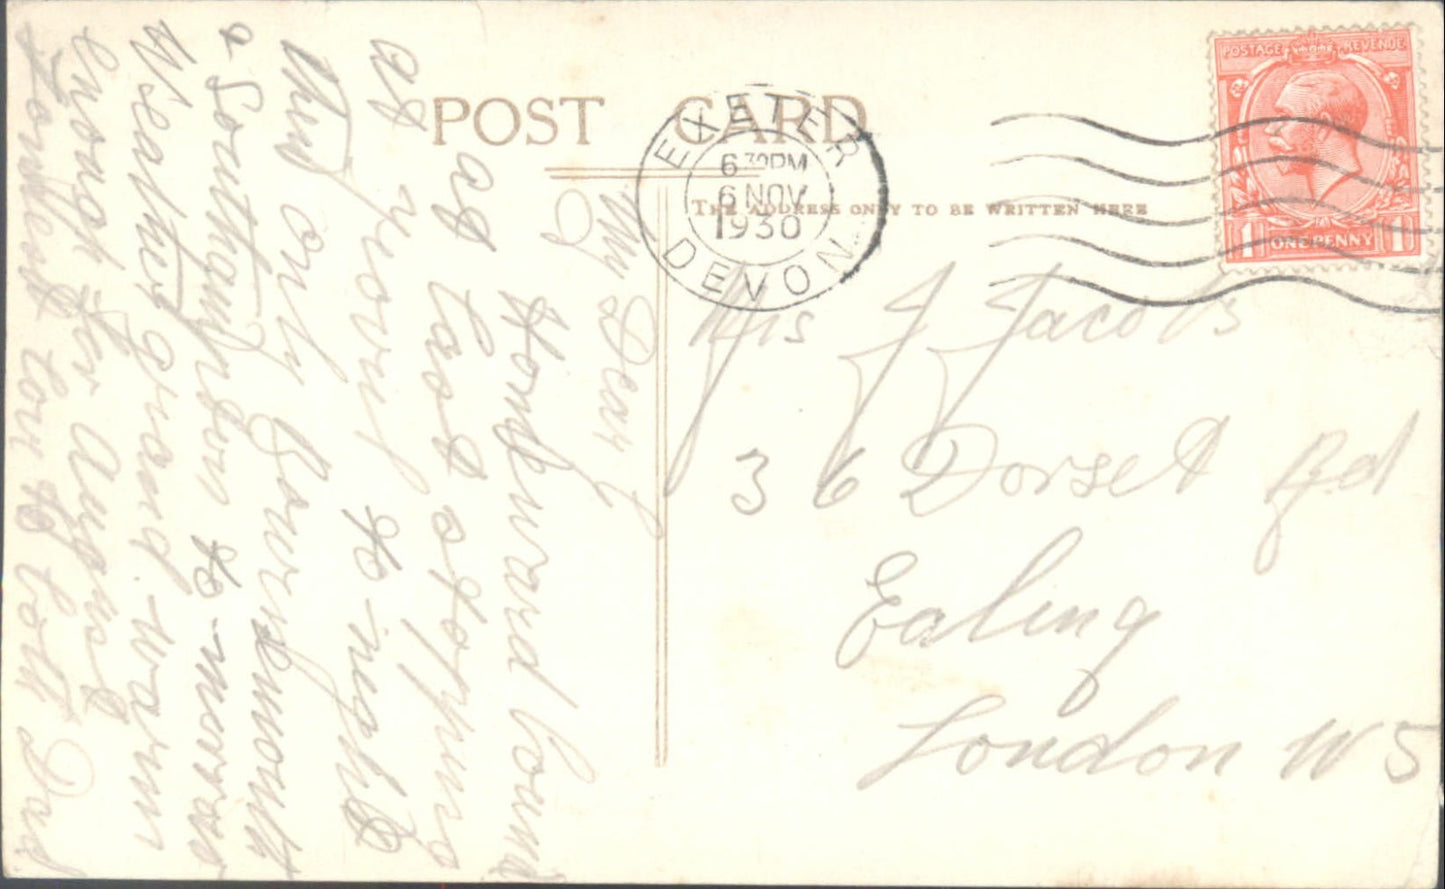 POST CARD
THE ADDRESS ONLY TO BE WRITTEN HERE
EXETER
6 30PM
6 NOV
1930
DEVON
POSTAGE REVENUE
1 ONE PENNY 1
J Jacobs
36 Dorset Rd
Ealing
London W5
My Dear
Homeward bound
at last stopping
at Yeovil to night
Then only Bournemouth
& Southampton to-morrow
Weather grand. warm
enough for August
Fondest love to both Dad